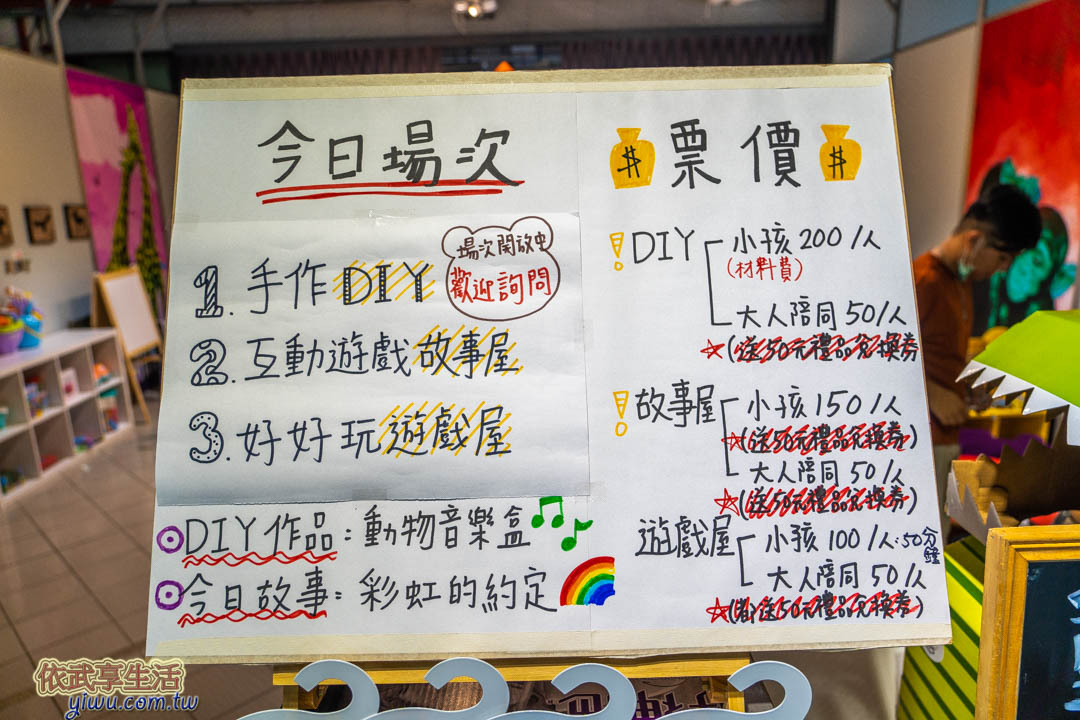 今日場次
場次開放中
歡迎詢問
1. 手作DIY
2. 互動遊戲故事屋
3. 好好玩遊戲屋
DIY作品：動物音樂盒
今日故事：彩虹的約定
$ 票價 $
! DIY
小孩200/人
(材料費)
大人陪同50/人
☆(送50元禮品兌換券
! 故事屋
小孩150/人
☆(送50元禮品兌換券)
大人陪同50/人
☆(送50元禮品兌換券)
遊戲屋
小孩100/人·50分鐘
大人陪同50/人
☆(都送50元禮品兌換券)
依武享生活
yiwu.com.tw